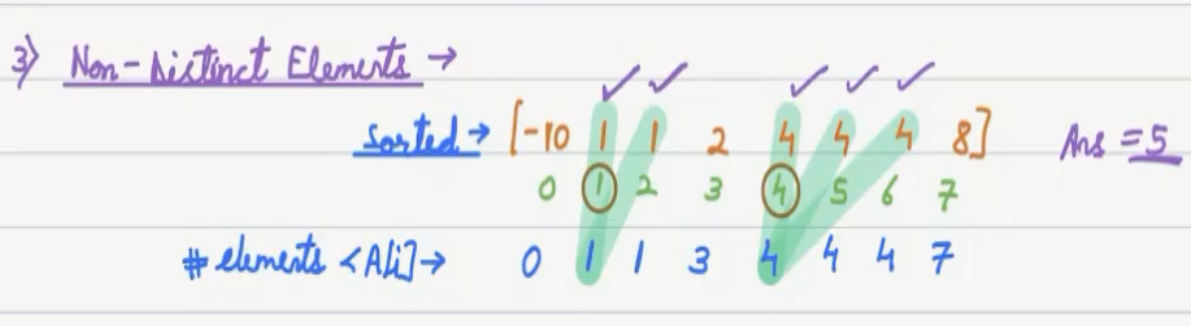 3) Non-Distinct Elements →
Sorted → [-10 1 1 2 4 4 4 8] Ans = 5
0 1 2 3 4 5 6 7
# elements <A[i] → 0 1 1 3 4 4 4 7